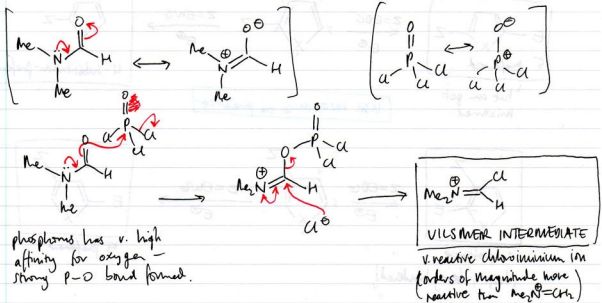 O
O⊖
O
O⊖
Me
N
H
Me
N⊕
H
Me
Me
P
Cl
Cl
Cl
P⊕
Cl
Cl
Cl
O
P
Cl
Cl
Cl
O
Me
N
H
Me
O
O
P
Cl
Cl
Me₂N⊕
H
Cl⊖
Cl
Me₂N⊕
H
VILSMEIER INTERMEDIATE
phosphorus has v. high
affinity for oxygen –
strong P–O bond formed.
v. reactive chloroiminium ion
(orders of magnitude more
reactive than Me₂N⊕=CH₂)